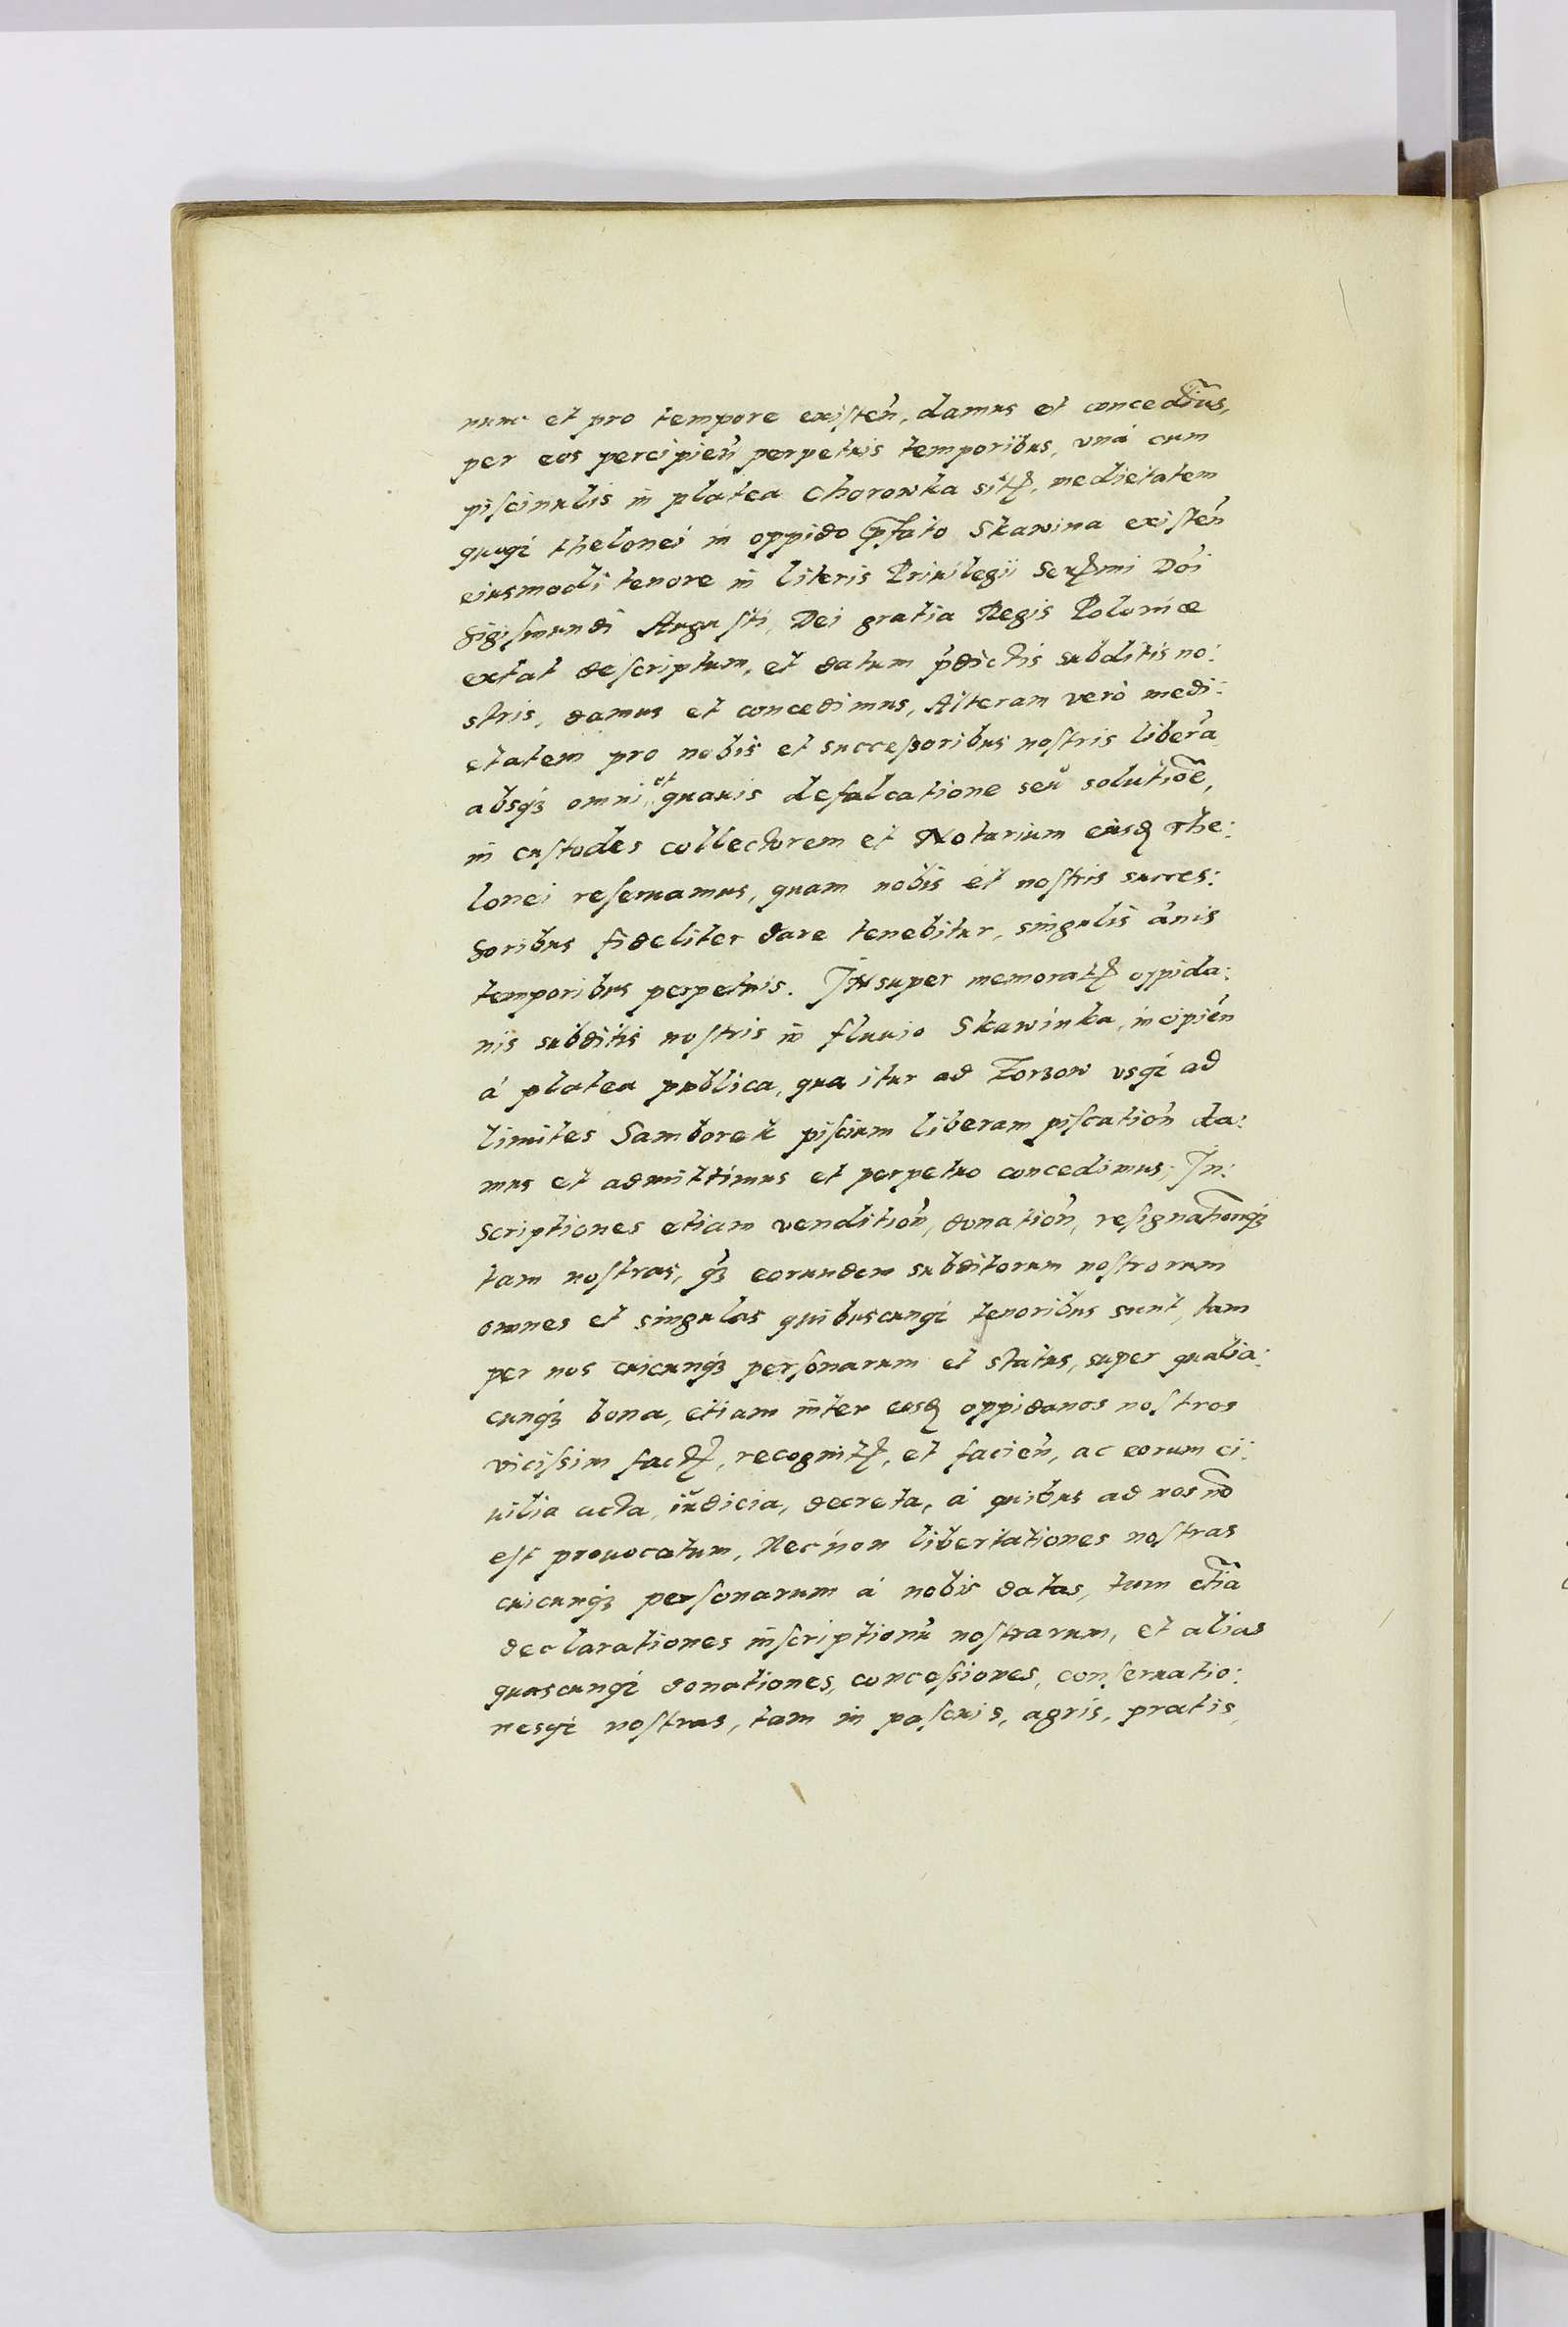 nunc et pro tempore existeñ, damus et concedim̃us,
per eos percipień perpetuis temporibus, vná cum
piscinulis in platea Chorowka sitꝭ, medietatem
quoqꝫ thelonei in oppido p̃fato Skawina existeń
eiusmodi tenore in literis Priuilegii Serꝭmi Dńi
Sigismundi Augusti, Dei gratia Regis Poloniæ
extat descriptum, et datum p̃dictis subditis no:
stris, damus et concedimus, Alteram verò medi:
etatem pro nobis et successoribus nostris liberã
absqꝫ omni et quauis defalcatione seu solutiõe,
in custodes collectorem et Notarium eiusd the:
lonei reseruamus, quam nobis et nostris succes:
soribus fideliter dare tenebitur, singulis ãnis
temporibus perpetuis. Insuper memoratꝭ oppida:
nis subditis nostris in fluuio Skawinka, incipień
á platea publica, qua itur ad Zorzow vsqꝫ ad
limites Samborek piscium liberam piscatioń da:
mus et admittimus et perpetuo concedimus, In:
scriptiones etiam venditioń, donatioń, resignationqꝫ
tam nostras, qꝫ̃ eorundem subditorum nostrorum
omnes et singulas quibuscunqꝫ tenoribus sunt, tam
per nos cuicunqꝫ personarum et status, super qualia:
cunqꝫ bona, etiam inter eosd oppidanos nostros
vicissim factꝭ, recognitꝭ, et facień, ac eorum ci:
uilia acta, iudicia, decreta, á quibus ad nos nõ
est prouocatum, Nec non libertationes nostras
cuicunqꝫ personarum á nobis datas, tum etiã
declarationes inscriptionũ nostrarum, et alias
quascunqꝫ donationes, concessiones, conseruatio:
nesqꝫ nostras, tam in pascuis, agris, pratis,